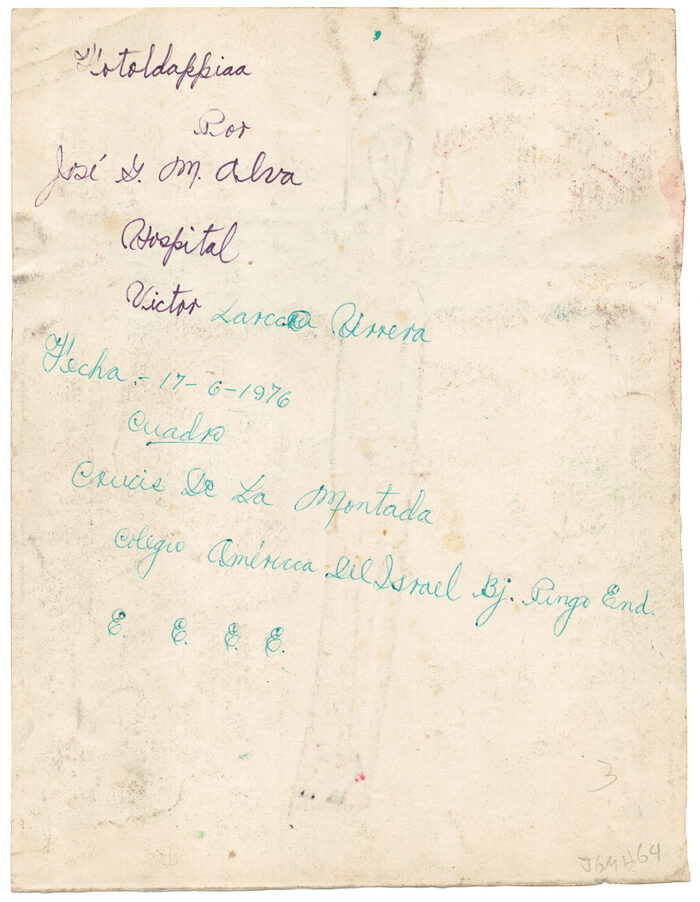 Fotoldappiaa
Por
José G. M. Alva
Hospital
Victor Larco Hrrera
Fecha.- 17-6-1976
Cuadro
Crucis De La Montada
Colegio Américca Del Israel Bj. Pingo End.
E. E. E. E.
3